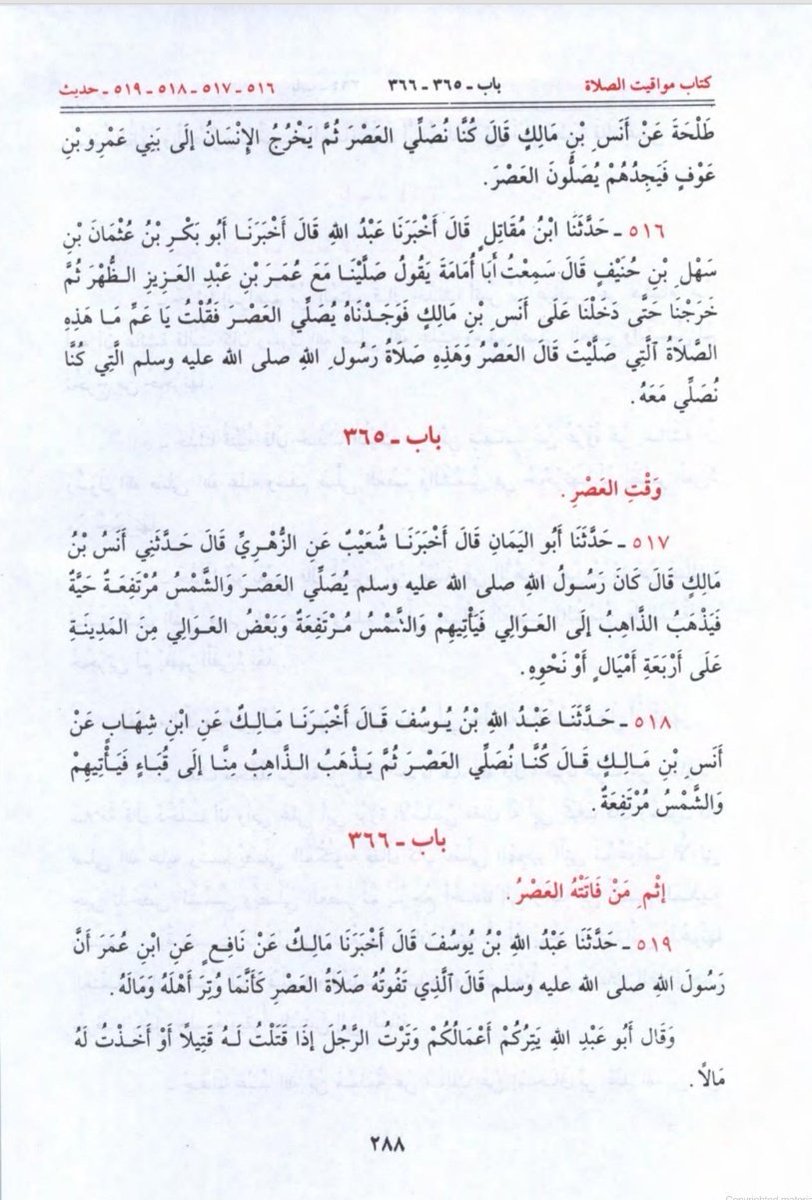 كتاب مواقيت الصلاة باب ـ ٣٦٥ ـ ٣٦٦ ٥١٦ ـ ٥١٧ ـ ٥١٨ ـ ٥١٩ ـ حديث
طَلْحَةَ عَنْ أَنَسِ بْنِ مَالِكٍ قَالَ كُنَّا نُصَلِّي العَصْرَ ثُمَّ يَخْرُجُ الإِنْسَانُ إِلَى بَنِي عَمْرِو بْنِ
عَوْفٍ فَيَجِدُهُمْ يُصَلُّونَ العَصْرَ.
٥١٦ ـ حَدَّثَنَا ابْنُ مُقَاتِلٍ قَالَ أَخْبَرَنَا عَبْدُ اللهِ قَالَ أَخْبَرَنَا أَبُو بَكْرِ بْنُ عُثْمَانَ بْنِ
سَهْلِ بْنِ حُنَيْفٍ قَالَ سَمِعْتُ أَبَا أُمَامَةَ يَقُولُ صَلَّيْنَا مَعَ عُمَرَ بْنِ عَبْدِ العَزِيزِ الظُّهْرَ ثُمَّ
خَرَجْنَا حَتَّى دَخَلْنَا عَلَى أَنَسِ بْنِ مَالِكٍ فَوَجَدْنَاهُ يُصَلِّي العَصْرَ فَقُلْتُ يَا عَمِّ مَا هَذِهِ
الصَّلَاةُ الَّتِي صَلَّيْتَ قَالَ العَصْرُ وَهَذِهِ صَلَاةُ رَسُولِ اللهِ صلى الله عليه وسلم الَّتِي كُنَّا
نُصَلِّي مَعَهُ.
باب ـ ٣٦٥
وَقْتِ العَصْرِ.
٥١٧ ـ حَدَّثَنَا أَبُو اليَمَانِ قَالَ أَخْبَرَنَا شُعَيْبٌ عَنِ الزُّهْرِيِّ قَالَ حَدَّثَنِي أَنَسُ بْنُ
مَالِكٍ قَالَ كَانَ رَسُولُ اللهِ صلى الله عليه وسلم يُصَلِّي العَصْرَ وَالشَّمْسُ مُرْتَفِعَةٌ حَيَّةٌ
فَيَذْهَبُ الذَّاهِبُ إِلَى العَوَالِي فَيَأْتِيهِمْ وَالشَّمْسُ مُرْتَفِعَةٌ وَبَعْضُ العَوَالِي مِنَ المَدِينَةِ
عَلَى أَرْبَعَةِ أَمْيَالٍ أَوْ نَحْوِهِ.
٥١٨ ـ حَدَّثَنَا عَبْدُ اللهِ بْنُ يُوسُفَ قَالَ أَخْبَرَنَا مَالِكٌ عَنِ ابْنِ شِهَابٍ عَنْ
أَنَسِ بْنِ مَالِكٍ قَالَ كُنَّا نُصَلِّي العَصْرَ ثُمَّ يَذْهَبُ الذَّاهِبُ مِنَّا إِلَى قُبَاءٍ فَيَأْتِيهِمْ
وَالشَّمْسُ مُرْتَفِعَةٌ.
باب ـ ٣٦٦
إِثْمِ مَنْ فَاتَتْهُ العَصْرُ.
٥١٩ ـ حَدَّثَنَا عَبْدُ اللهِ بْنُ يُوسُفَ قَالَ أَخْبَرَنَا مَالِكٌ عَنْ نَافِعٍ عَنِ ابْنِ عُمَرَ أَنَّ
رَسُولَ اللهِ صلى الله عليه وسلم قَالَ الَّذِي تَفُوتُهُ صَلَاةُ العَصْرِ كَأَنَّمَا وُتِرَ أَهْلَهُ وَمَالَهُ.
وَقَالَ أَبُو عَبْدِ اللهِ يَتِرُكُمْ أَعْمَالَكُمْ وَتَرْتُ الرَّجُلَ إِذَا قَتَلْتُ لَهُ قَتِيلاً أَوْ أَخَذْتُ لَهُ
مَالاً.
٢٨٨